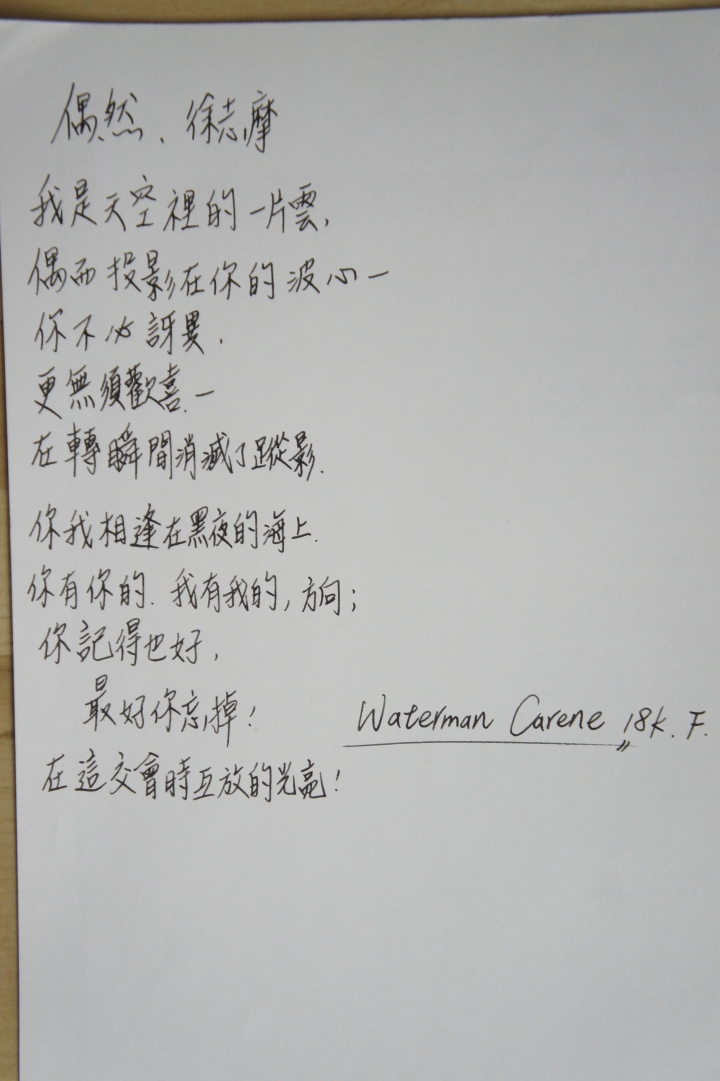 偶然、徐志摩
我是天空裡的一片雲，
偶而投影在你的波心—
你不必訝異，
更無須歡喜—
在轉瞬間消滅了蹤影.
你我相逢在黑夜的海上.
你有你的. 我有我的, 方向；
你記得也好，
最好你忘掉！
Waterman Carene 18K. F.
在這交會時互放的光亮！